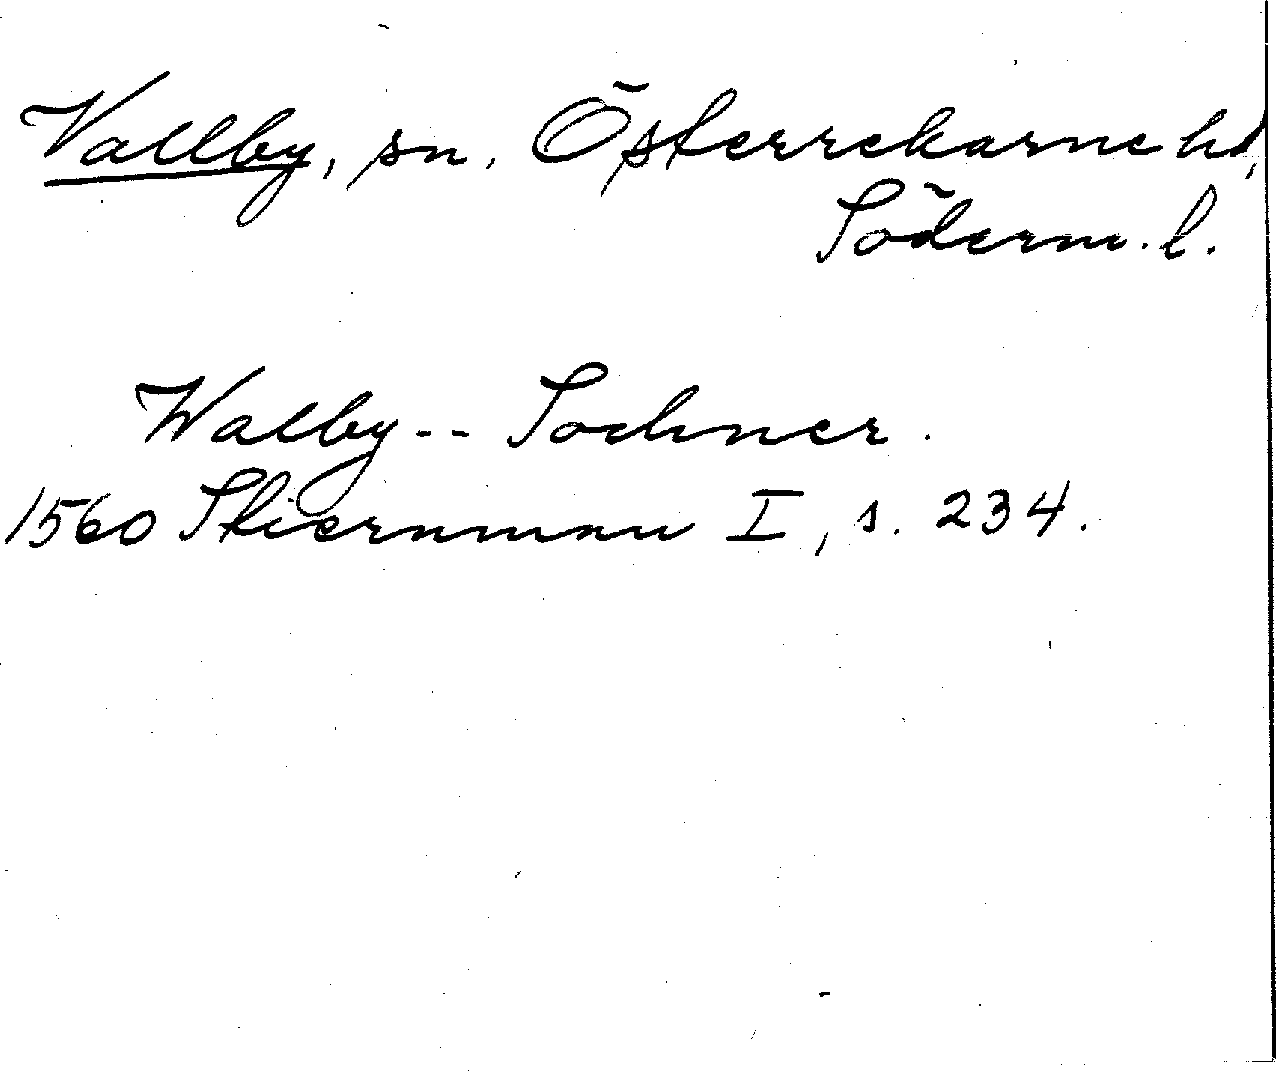 Vallby, sn, Österrekarne hd,
Söderm. l.
Walby -- Sochner.
1560 Stiernman I, s. 234.